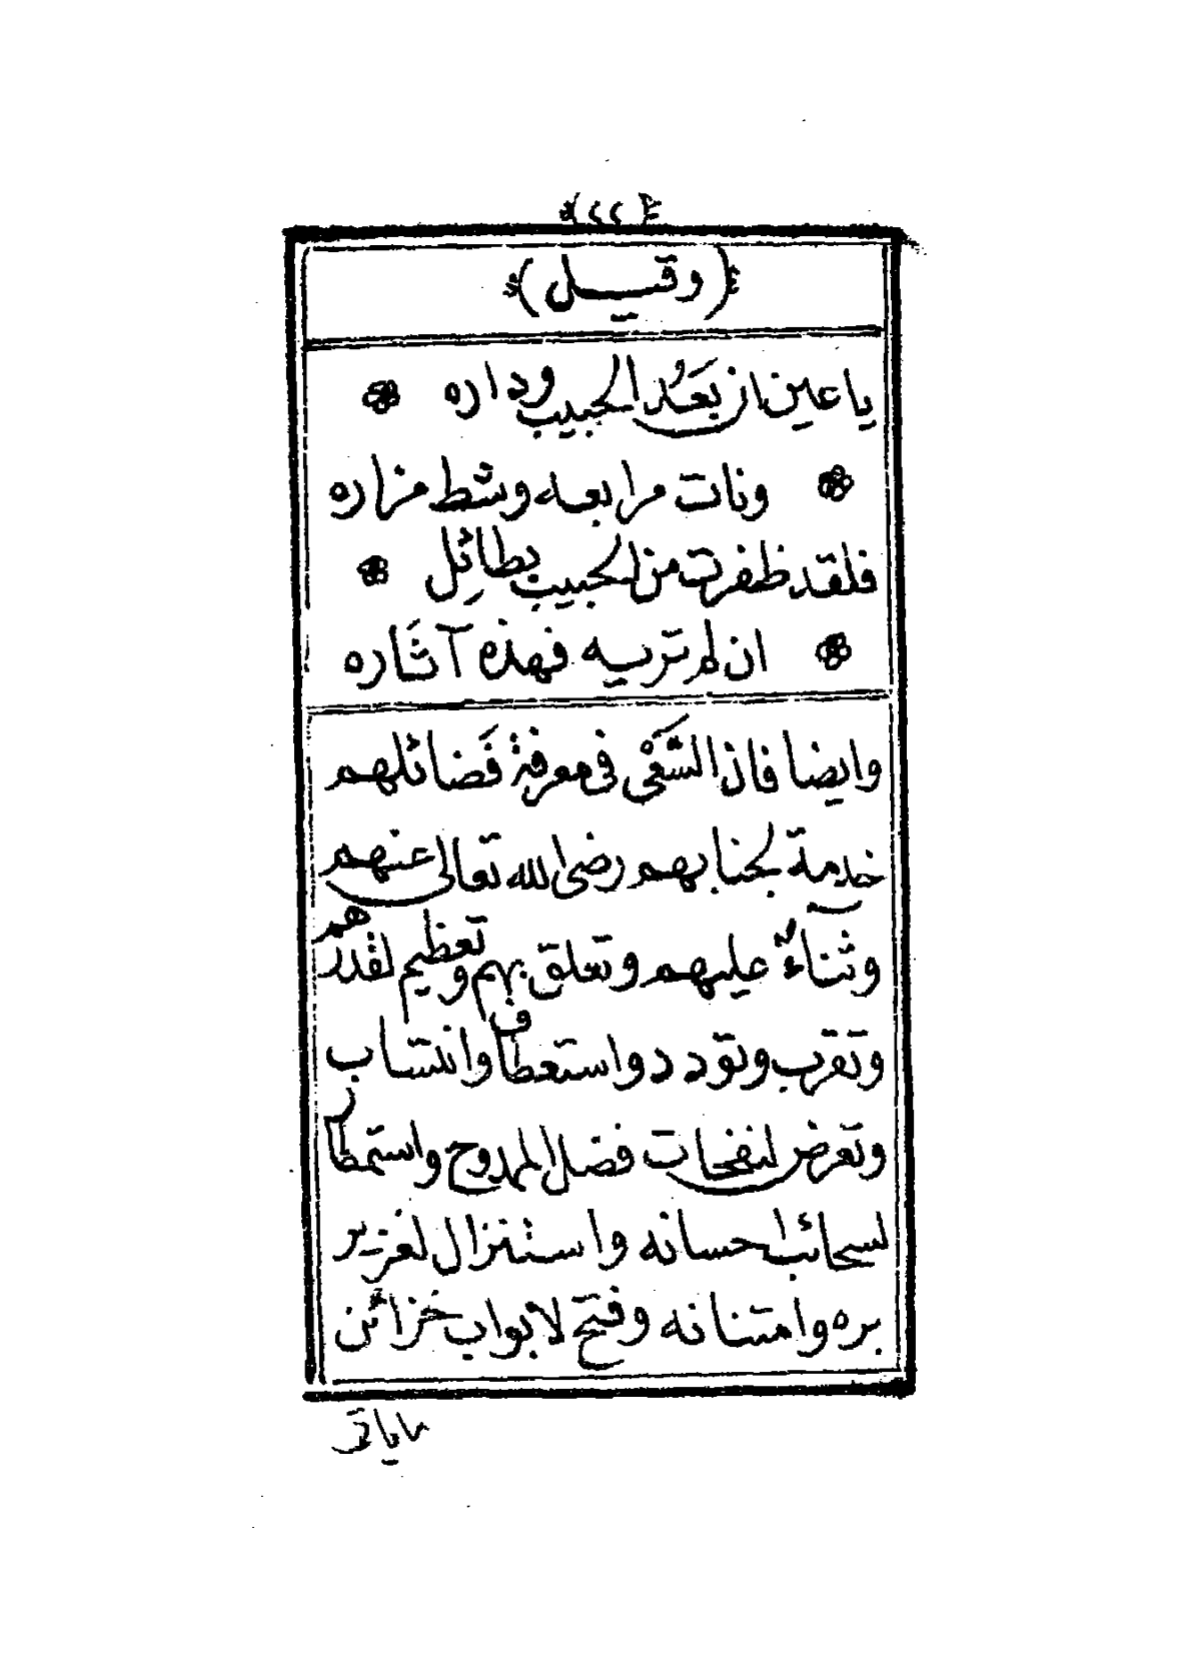 (٢٢)
(وقيل)
يا عين ان بَعُد الحبيب وداره
ونات مرابعه وشط مزاره
فلقد ظفرت من الحبيب بطائِل
ان لم تريه فهذه آثَاره
وايضا فان السَّعْى فى معرفة فَضائلهم
خدمة لجنابهم رضى الله تعالى عنهم
وثناءٌ عليهم وتعلق بهم وتعظيم لقدرهم
وتقرب وتودد واستعطاف وانتساب
وتعرض لنفحات فضل الممدوح واستمطار
لسحائب احسانه واستنزال لغزير
بره وامتنانه وفتح لابواب خزائن